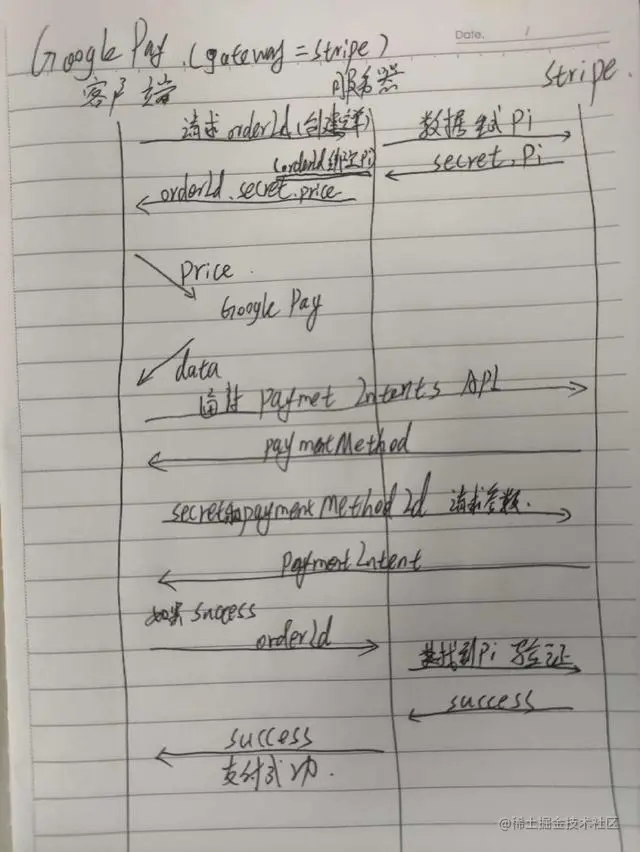 Google Pay.(gateway=stripe)
Date.
客户端 服务器 stripe
请求 orderId(创建订单) 数据 Pi
(orderId绑定Pi) secret.Pi
orderId.secret.price
price
Google Pay
data
通过 Paymet Intents API
paymentMethod
secret和paymentMethodId 请求参数.
PaymentIntent
如果 success
orderId
找到Pi 验证
success
success
支付成功.
@稀土掘金技术社区